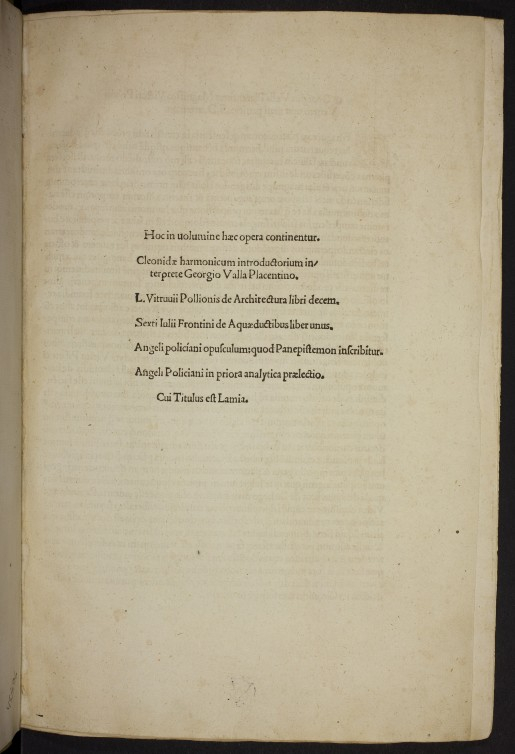 Hoc in uolumine hæc opera continentur.
Cleonidæ harmonicum introductorium in/
terprete Georgio Valla Placentino.
L. Vitruuii Pollionis de Architectura libri decem.
Sexti Iulii Frontini de Aquæductibus liber unus.
Angeli policiani opusculum: quod Panepistemon inscribitur.
Angeli Policiani in priora analytica prælectio.
Cui Titulus est Lamia.